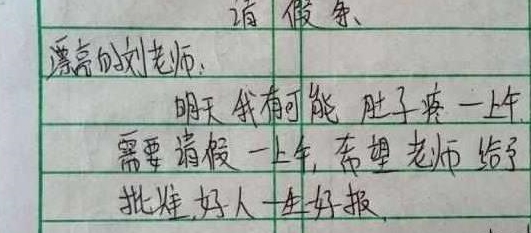 请假条
漂亮的刘老师:
明天我有可能肚子疼一上午
需要请假一上午,希望老师给予
批准,好人一生好报